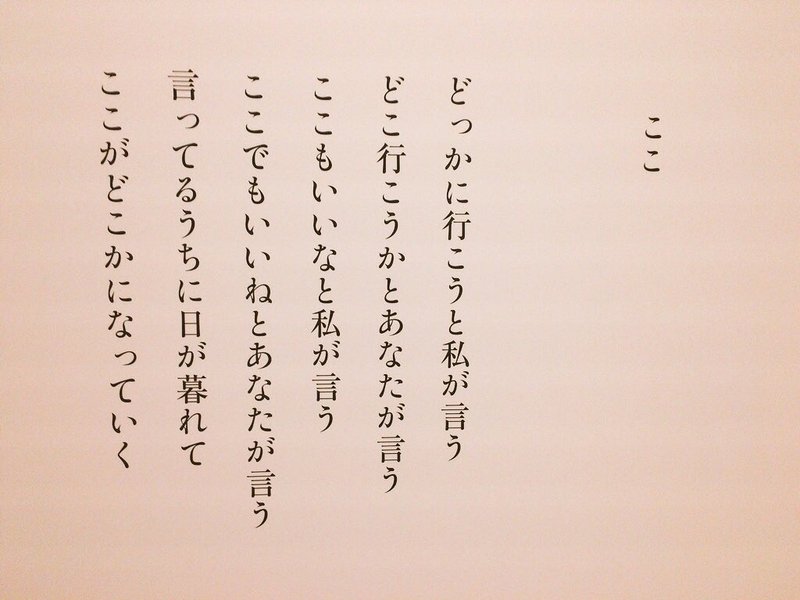 ここ
どっかに行こうと私が言う
どこ行こうかとあなたが言う
ここもいいなと私が言う
ここでもいいねとあなたが言う
言ってるうちに日が暮れて
ここがどこかになっていく